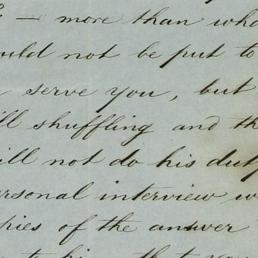 — more than who
ould not be put to
serve you, but
ill shuffling and th
ill not do his duty
ersonal interview w
pies of the answer